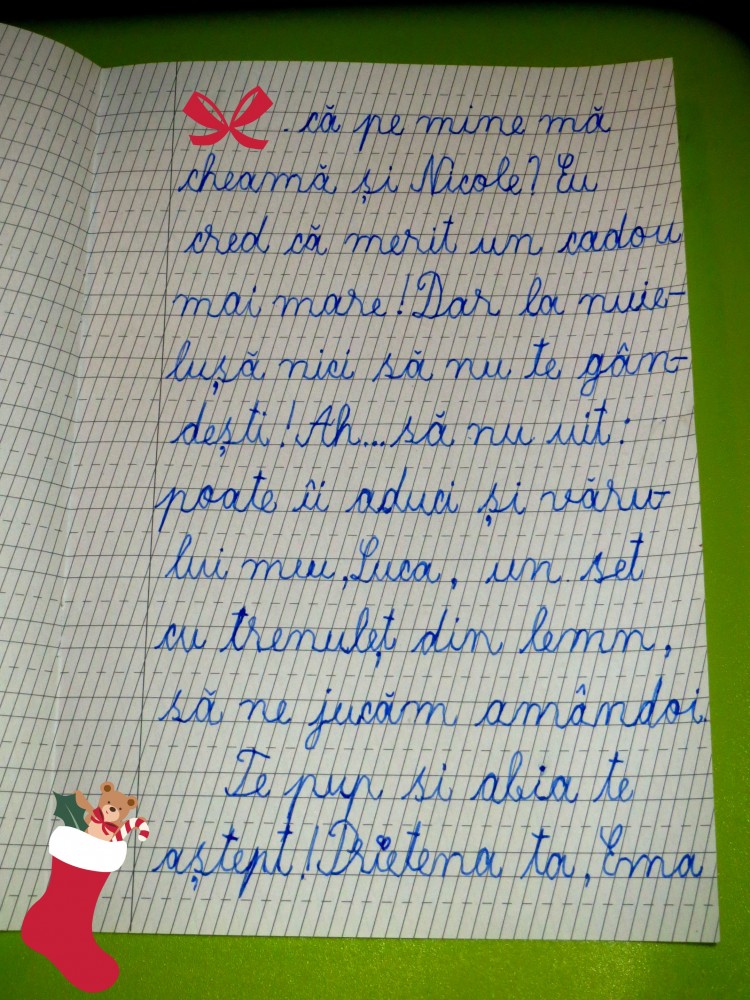 . că pe mine mă
cheamă și Nicole? Eu
cred că merit un cadou
mai mare! Dar la nuie-
lușă nici să nu te gân-
dești! Ah... să nu uit:
poate îi aduci și văru-
lui meu, Luca, un set
cu trenuleț din lemn,
să ne jucăm amândoi.
Te pup si abia te
aștept! Prietena ta, Ema